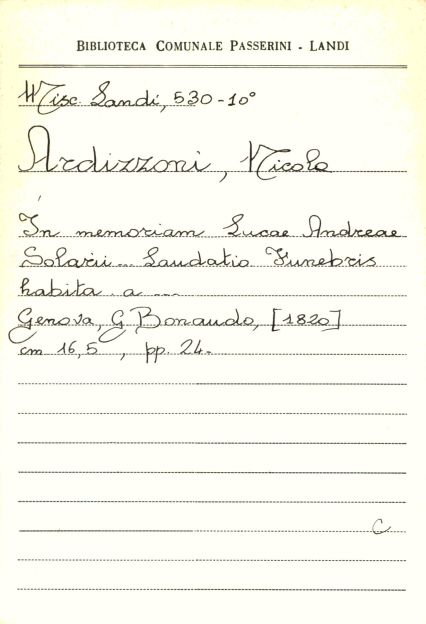 BIBLIOTECA COMUNALE PASSERINI - LANDI
Misc. Landi, 530-10°
Ardizzoni, Nicola
In memoriam Lucae Andreae
Solarii ... Laudatio Funebris
habita a ...
Genova, G Bonaudo, [1820]
cm 16,5 , pp. 24.
C